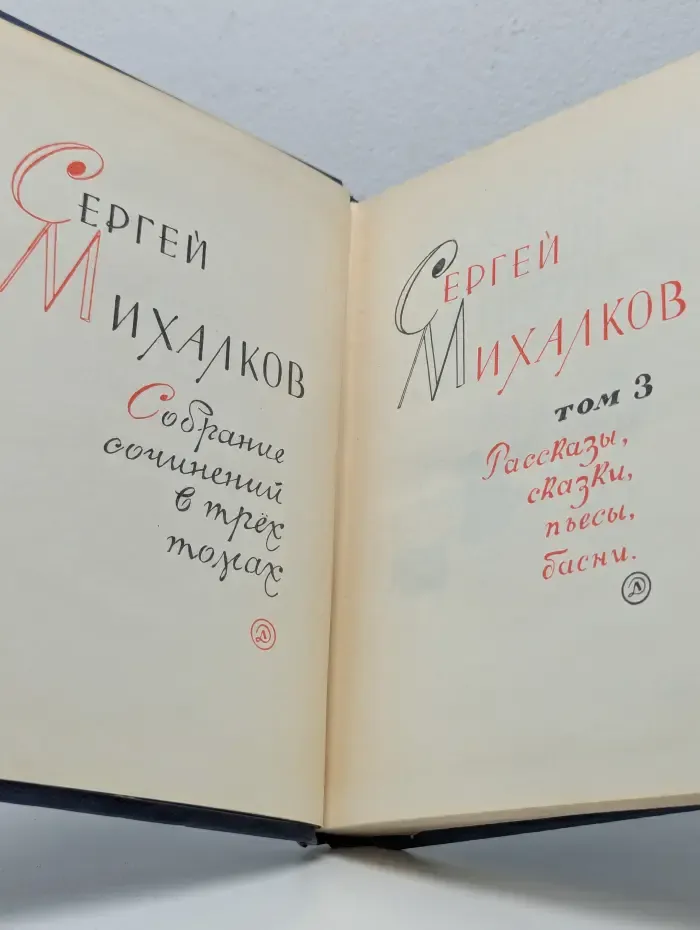 Сергей
Михалков
Собрание
сочинений
в трёх
томах
Д
Сергей
Михалков
том 3
Рассказы,
сказки,
пьесы,
басни.
Д